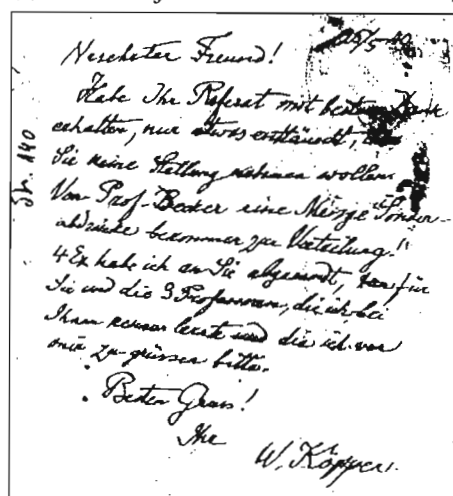 Verehrter Freund!
25/5 40
Habe Ihr Referat mit bestem Dank
erhalten, nur etwas enttäuscht,
Sie keine Stellung nehmen wollen.
Von Prof. Becker eine Menge Sonder-
abdrücke bekommen zur Verteilung!
4 Ex habe ich an Sie abgesandt, für
Sie und die 3 Professoren, die ich bei
Ihnen kennen lernte und die ich von
mir zu grüssen bitte.
Besten Gruss!
Ihr
W. Köppen.
140